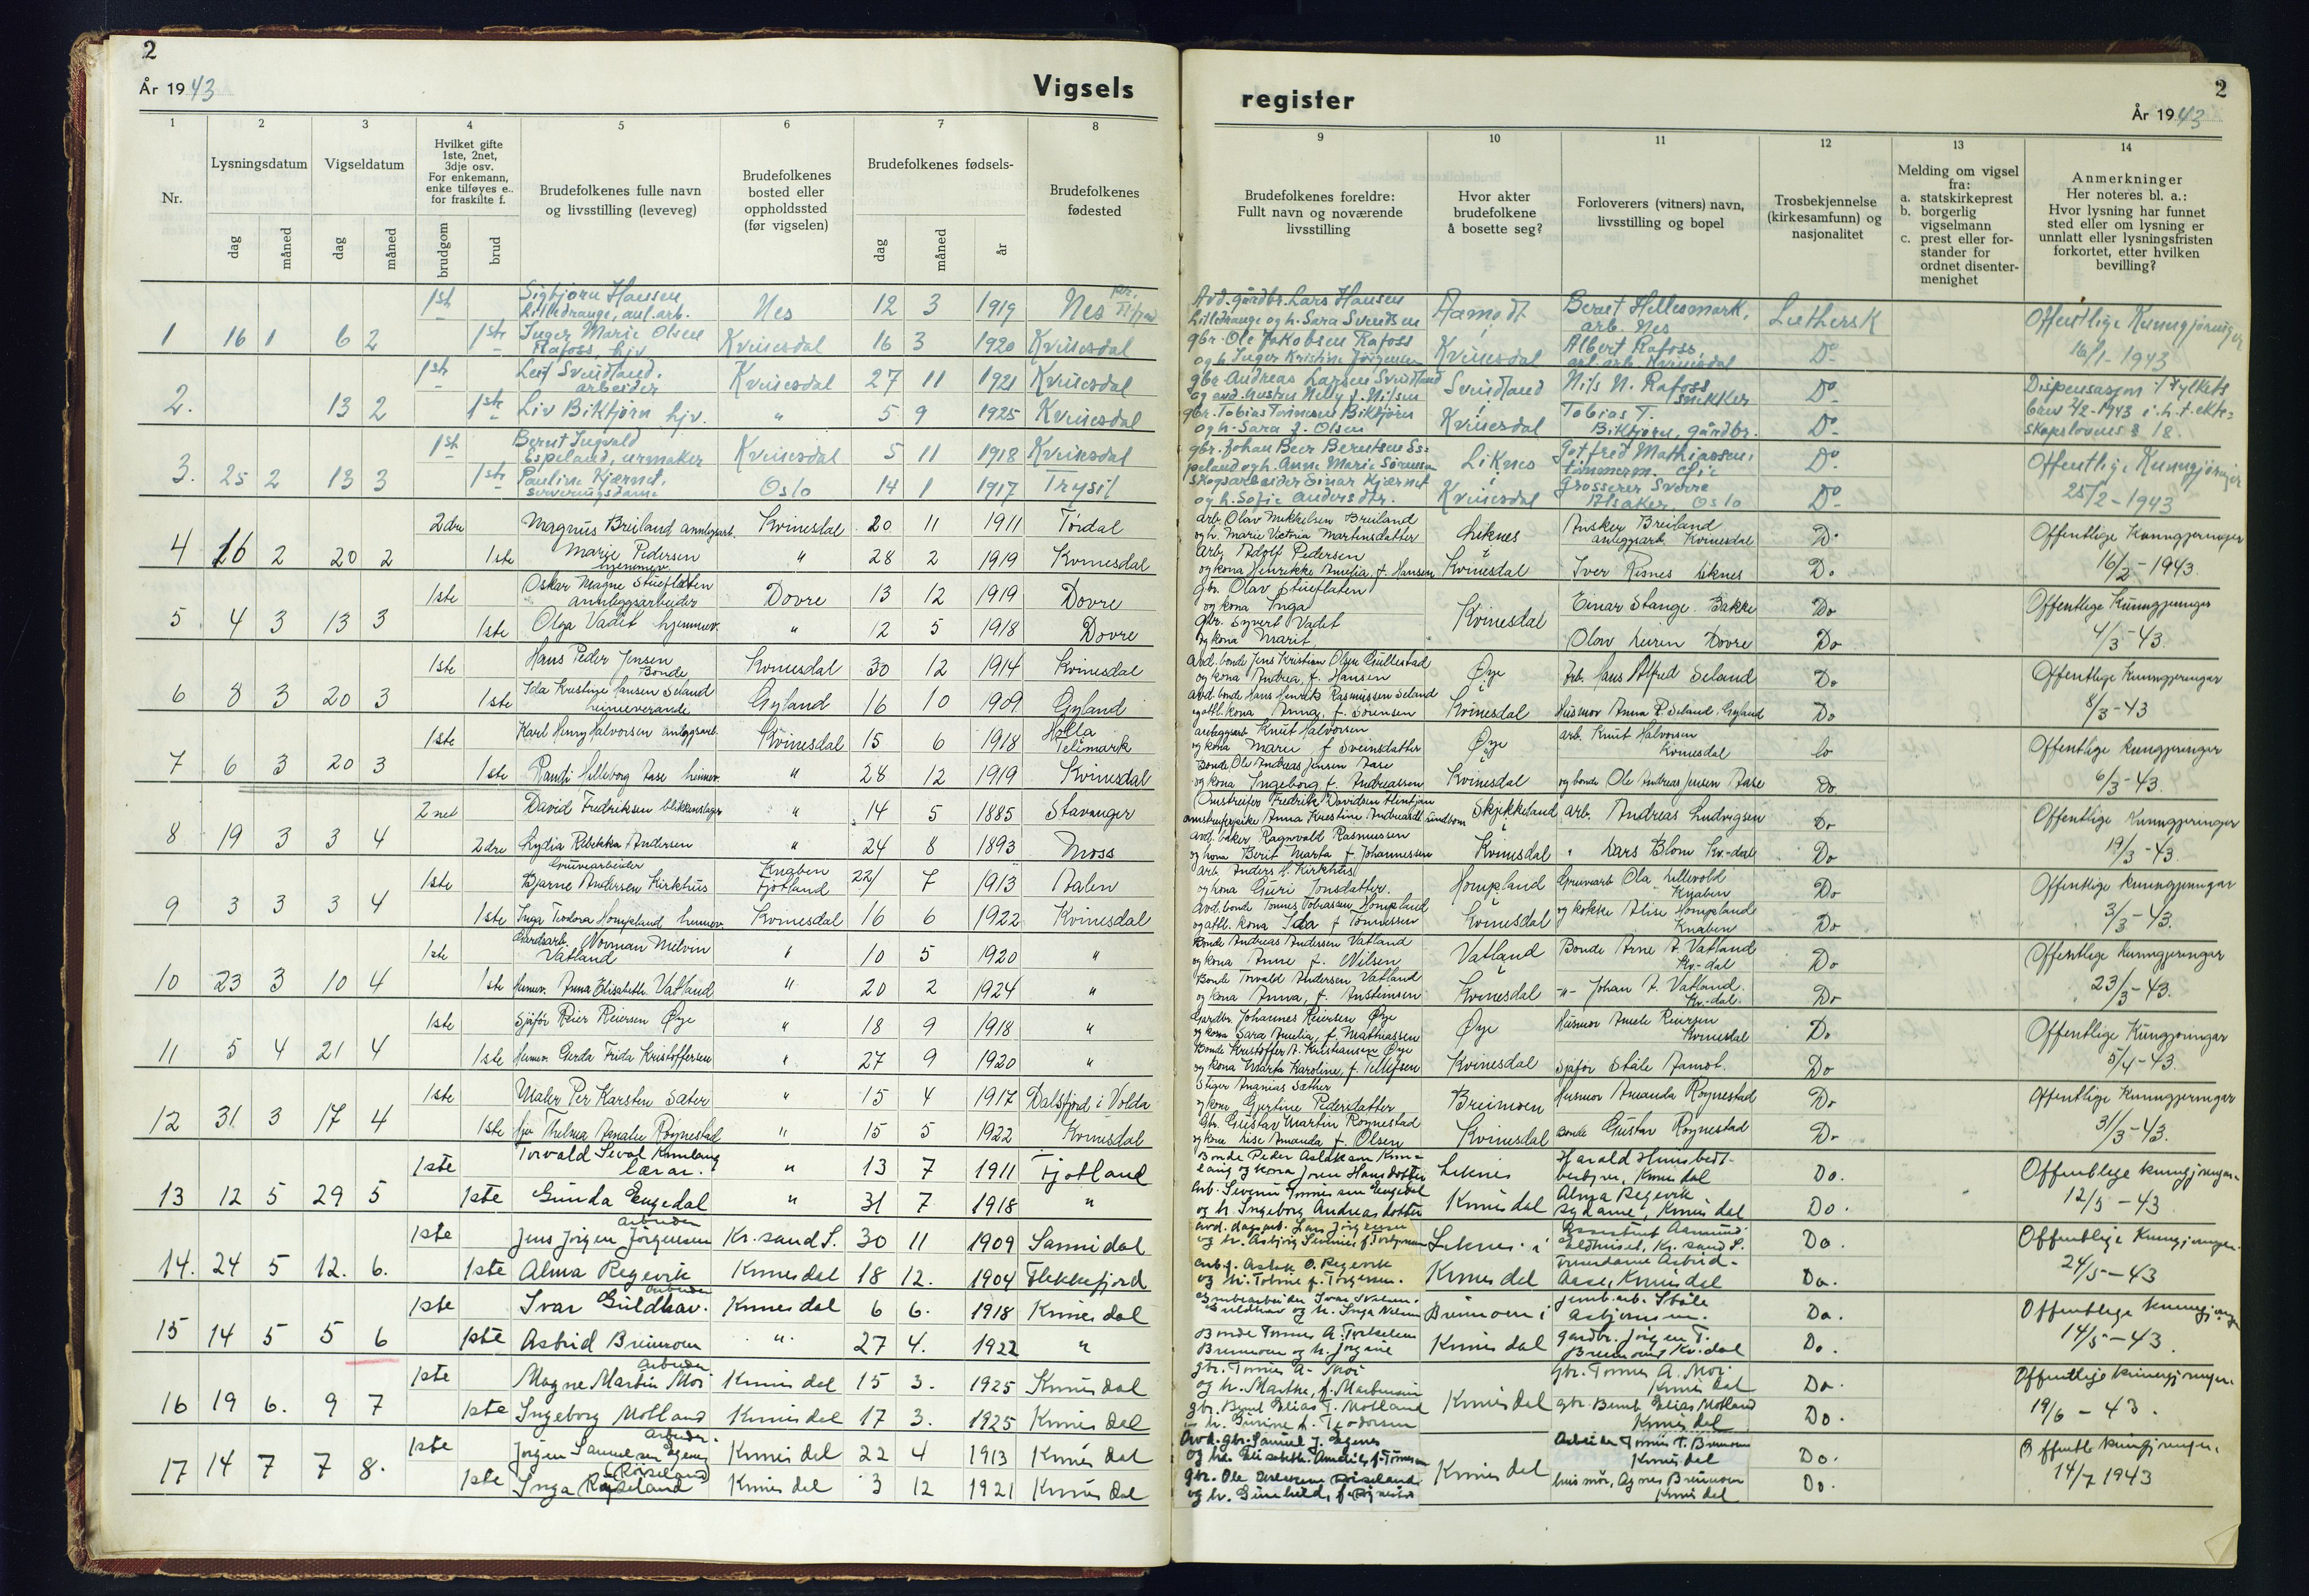 2
År 1943
Vigsels
1
2
3
4
5
6
7
8
Nr.
Lysningsdatum
Vigseldatum
Hvilket gifte
1ste, 2net,
3dje osv.
For enkemann,
enke tilføyes e..
for fraskilte f.
Brudefolkenes fulle navn
og livsstilling (leveveg)
Brudefolkenes
bosted eller
oppholdssted
(før vigselen)
Brudefolkenes fødsels-
Brudefolkenes
fødested
dag
måned
dag
måned
brudgom
brud
dag
måned
år
1ste Sigbjørn Hansen Lilledrange, anl.arb. Nes 12 3 1919 Nes
1 16 1 6 2 1ste Inger Marie Olsen Rafoss, hjv. Kvinesdal 16 3 1920 Kvinesdal
1ste Leif Svindland. arbeider Kvinesdal 27 11 1921 Kvinesdal
2. 13 2 1ste Liv Bikfjørn hjv. " 5 9 1925 Kvinesdal
1ste Bernt Ingvald Espeland, urmaker Kvinesdal 5 11 1918 Kvinesdal
3. 25 2 13 3 1ste Pauline Kjærnet, serveringsdame Oslo 14 1 1917 Trysil
2dre Magnus Breiland annlegsarb. Kvinesdal 20 11 1911 Tørdal
4 16 2 20 2 1ste Marie Pedersen hjemmev. " 28 2 1919 Kvinesdal
1ste Oskar Magne Stueflaten annleggsarbeider Dovre 13 12 1919 Dovre
5 4 3 13 3 1ste Olga Vadet hjemmev. " 12 5 1918 Dovre
1ste Hans Peder Jensen Bonde Kvinesdal 30 12 1914 Kvinesdal
6 8 3 20 3 1ste Ida Kristine Hansen Seland heimeverande Gyland 16 10 1909 Gyland
1ste Karl Henry Halvorsen anleggsarb. Kvinesdal 15 6 1918 Holla Telemark
7 6 3 20 3 1ste Randi Hilleborg Aase heimev. " 28 12 1919 Kvinesdal
2net David Fredriksen blikkenslager " 14 5 1885 Stavanger
8 19 3 3 4 2dre Lydia Rebekka Andersen " 24 8 1893 Moss
1ste Gruvearbeider Bjarne Andersen Kirkhus Knaben Fjotland 22/ 7 1913 Aalen
9 3 3 3 4 1ste Inga Teodora Hompland heimev. Kvinesdal 16 6 1922 Kvinesdal
1ste Gardsarb. Norman Melvin Vatland " 10 5 1920 "
10 23 3 10 4 1ste Heimev. Anna Elisabeth Vatland " 20 2 1924 "
1ste Sjåfør Reier Reiersen Øye " 18 9 1918 "
11 5 4 21 4 1ste Heimev. Gerda Frida Kristoffersen " 27 9 1920 "
1ste Maler Per Karsten Sæter " 15 4 1917 Dalsfjord i Volda
12 31 3 17 4 1ste hjv. Thelma Amalie Røynestad " 15 5 1922 Kvinesdal
1ste Torvald Seval Kvinlaug lærar. " 13 7 1911 Fjotland
13 12 5 29 5 1ste Gunda Engedal " 31 7 1918 "
1ste Jens Jørgen Jørgensen arbeider Kr.sand S. 30 11 1909 Sannidal
14. 24 5 12. 6. 1ste Alma Regevik Kvinesdal 18 12. 1904 Flekkefjord
1ste Ivar Guldhav. arbeider Kvinesdal 6 6. 1918 Kvinesdal
15 14 5 5 6 1ste Astrid Breimoen " 27 4. 1922 "
1ste Magne Martin Moi arbeider Kvinesdal 15 3. 1925 Kvinesdal
16 19 6. 9 7 1ste Ingeborg Motland Kvinesdal 17 3. 1925 Kvinesdal
1ste Jørgen Samuelsen Egenes arbeider. Kvinesdal 22 4 1913 Kvinesdal
17 14 7 7 8. 1ste Inga Røiseland (Røiseland) Kvinesdal 3 12 1921 Kvinesdal
register
2
År 1943
9
10
11
12
13
14
Brudefolkenes foreldre:
Fullt navn og noværende
livsstilling
Hvor akter
brudefolkene
å bosette seg?
Forloverers (vitners) navn,
livsstilling og bopel
Trosbekjennelse
(kirkesamfunn) og
nasjonalitet
Melding om vigsel
fra:
a. statskirkeprest
b. borgerlig
vigselmann
c. prest eller for-
stander for
ordnet disenter-
menighet
Anmerkninger
Her noteres bl. a.:
Hvor lysning har funnet
sted eller om lysning er
unnlatt eller lysningsfristen
forkortet, etter hvilken
bevilling?
Avd. gårdbr. Lars Hansen Lilledrange og h. Sara Svendsen Aamodt i Bernt Hellesmark, arb. Nes Luthersk Offentlige Kunngjøringer
gbr. Ole Jakobsen Rafoss og h. Inger Kristine Jørgensen Kvinesdal Albert Rafoss, anl.arb. Kvinesdal Do 16/1-1943
gbr. Andreas Larsen Svindland og avd. hustru Nelly f. Nilsen Svindland i Nils N. Rafoss snekker Do Dispensasjon i fylkets
gbr. Tobias Tønnesen Bikfjørn og h. Sara f. Olsen Kvinesdal Tobias T. Bikfjørn, gårdbr. Do brev 2/2-1943 i.h.t. ekteskapslovens § 18.
gbr. Johan Beer Berntsen Espeland og h. Anne Marie Sørensen Liknes Gotfred Mathiassen, tømmerm. Do Offentlige Kunngjøringer
skogsarbeider Einar Kjærnet og h. Sofie Andersdtr. Kvinesdal Grosserer Sverre Oslo Do 25/2-1943
arb. Olav Mikkelsen Breiland og h. Marie Victoria Martinsdatter Liknes i Ansker Breiland anleggsarb. Kvinesdal Do Offentlige Kunngjøringer
Arb. Adolf Pedersen og kona Henrikke Amelia f. Hansen Kvinesdal Iver Risnes Liknes Do 16/2-1943.
gbr. Olav Stueflaten og kona Inga Kvinesdal Einar Stange. Bakke Do Offentlige Kunngjøringer
gbr. Syvert Vadet og kona Marit Olav Leiren Dovre Do 4/3-43.
Avd. bonde Jens Kristian Olsen Gullestad og kona Andrea f. Hansen Øye i Arb. Hans Alfred Seland Do Offentlige Kunngjeringar
avd. bonde Hans Henrik Rasmussen Seland og attl. kona Anna f. Sørensen Kvinesdal Husmor Anna R. Seland. Gyland Do 8/3-43
anleggsarb. Knut Halvorsen og kona Marie f. Sveinsdatter Øye i arb. Knut Halvorsen Kvinesdal Do Offentlige kungjeringer
Bonde Ole Andreas Jensen Aase og kona Ingeborg f. Andreassen Kvinesdal og bonde Ole Andreas Jensen Aase Do 6/3-43.
Fredrik Davidsen og Anna Kristine Skjekkeland i arb. Andreas Ludvigsen Do Offentlige Kunngjeringer
avd. baker Ragnvald Rasmussen og kona Berit Marta f. Johannessen Kvinesdal " Lars Blom Kv.-dal Do 19/3-43.
arb. Anders H. Kirkhus og kona Guri Jonsdatter. Hompland i Gruvearb. Ola Lillevold Knaben Do Offentlige kunngjeringar
Avd. bonde Tønnes Tobiassen Hompland og attl. kona Ida f. Tønnessen Kvinesdal og kokke Alise Hompland Knaben Do 3/3-43.
Bonde Andreas Andersen Vatland og kona Anne f. Nilsen Vatland i Bonde Arne A. Vatland Kv-dal Do Offentlige kunngjeringar
Bonde Torvald Andersen Vatland og kona Anna, f. Austensen Kvinesdal -"- Johan A. Vatland. Kv.-dal. Do 23/3-43.
Gardbr. Johannes Reiersen Øye og kona Sara Amelia, f. Mathiassen Øye i Husmor Amele Reiersen Kvinesdal Do Offentlige Kungjøringar
Bonde Kristoffer A. Kristiansen Øye og kona Marta Karoline, f. Tellefsen Kvinesdal Sjåfør Ståle Aamot. Do 5/4-43.
Stiger Ananias Sæther og kona Gjertine Pedersdatter Breimoen i Husmor Amanda Røynestad Do Offentlige Kunngjeringar
Gbr. Gustav Martin Røynestad og kona Lise Amanda f. Olsen Kvinesdal Bonde Gustav Røynestad Do 31/3-43.
Bonde Peder Aslaksen Kvinlaug og kona Joren Hansdotter Liknes Harald Hunsbedt, Kvinesdal Do. Offentlege kunngjeringar.
Arb. Severin Tønnessen Engedal og h. Ingeborg Andreasdotter Kvinesdal Alma Regevik sydame, Kvinesdal Do. 12/5-43
avd. Lars Jørgensen og h. Asbjørg f. Torbjørnsen Liknes i Assistent Aamund Eldhuset, Kr.sand S. Do. Offentlige kunngjeringar.
arb.f. Aslak O. Regevik og h. Tobine f. Torgersen. Kvinesdal Astrid Aase, Kvinesdal Do. 24/5-43
Ivar Guldhav og h. Inga Nilsen Breimoen i Ståle Asbjørnsen. Do. Offentlege kunngjeringar
Bonde Tønnes A. Torkelsen Breimoen og h. Jørgine Kvinesdal Gardbr. Jørgen T. Breimoen, Kv.dal Do. 14/5-43.
gbr. Tønnes A. Moi og h. Marthe, f. Martinsen Kvinesdal Gbr. Tønnes A. Moi Kvinesdal Do. Offentlige kunngjeringar.
gbr. Bernt Elias T. Motland og h. Gurine f. Teodorsen gbr. Bernt Elias Motland Kvinesdal Do. 19/6-43.
Avd. gbr. Samuel J. Egenes og h. Elisabeth Amelie f. Tønnessen Kvinesdal Arbeider Tønnes T. Breimoen Kvinesdal Do. Offentl. kunngjeringar.
gbr. Ole Røiseland og h. Gunhild, husmor, Agnes Breimoen Kvinesdal Do. 14/7 1943